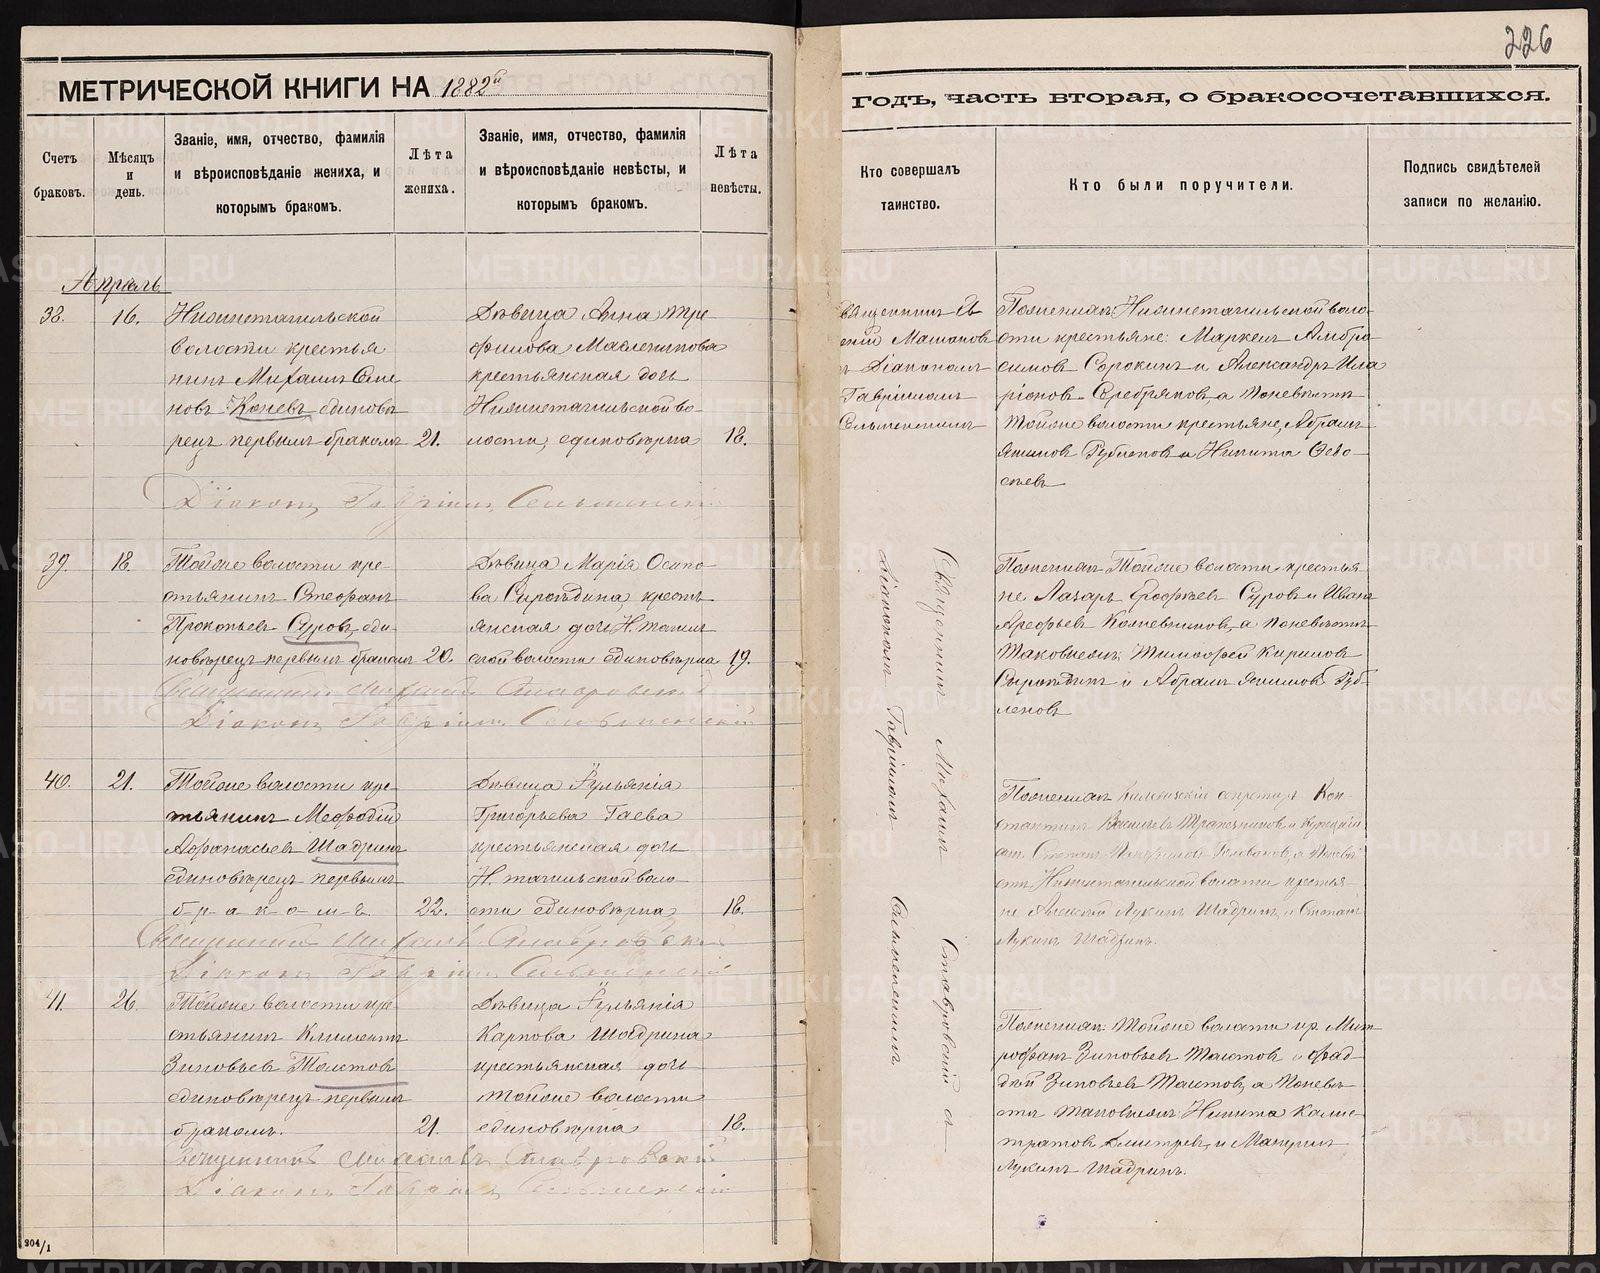 226
МЕТРИЧЕСКОЙ КНИГИ НА 1882й
ГОДЪ, ЧАСТЬ ВТОРАЯ, О БРАКОСОЧЕТАВШИХСЯ.
Счетъ браковъ.
Мѣсяцъ и день.
Званіе, имя, отчество, фамилія
и вѣроисповѣданіе жениха, и
которымъ бракомъ.
Лѣта жениха.
Званіе, имя, отчество, фамилія
и вѣроисповѣданіе невѣсты, и
которымъ бракомъ.
Лѣта невѣсты.
Кто совершалъ
таинство.
Кто были поручители.
Подпись свидѣтелей
записи по желанію.
Апрѣль
38.
16.
Нижнетагильской
волости крестья
нинъ Михаилъ Семе
новъ Коневъ единовѣ
рецъ первымъ бракомъ
21.
Дѣвица Анна Тре
филова Масленикова
крестьянская дочь
Нижнетагильской во
лости, единовѣрка
18.
Гавріиломъ
Сельменскимъ
По женихѣ: Нижнетагильской воло
сти крестьяне: Маркелъ Амбро
симовъ Сорокинъ и Александръ Ила
ріоновъ Серебряковъ, а по невѣстѣ
тойже волости крестьяне, Абрамъ
Якимовъ Рублевъ и Никита
Діаконъ Гавріилъ Сельменскій
39.
18.
Тойже волости кре
стьянинъ Стефанъ
Прокопьевъ Суровъ, еди
новѣрецъ первымъ бракомъ
20.
Дѣвица Марія Осипо
ва Сыроѣдина, кресть
янская дочь Н. Тагиль
ской волости единовѣрка
19.
По женихѣ Тойже волости крестья
не Лазарь Суровъ и Иванъ
Арефьевъ Кожевниковъ, а по невѣстѣ
таковыеже: Тимофей Кириловъ
Сыроѣдинъ и Абрамъ Якимовъ Руб
левъ
Священникъ Михаилъ Ставровскій
Діаконъ Гавріилъ Сельменскій
40.
21.
Тойже волости кре
стьянинъ Мефодій
Афанасьевъ Шадринъ
единовѣрецъ первымъ
б-р-а-к-о-м-ъ
22.
Дѣвица Іульянія
Григорьева Гаева
крестьянская дочь
Н. тагильской воло
сти единовѣрка
18.
Лукинъ Шадринъ, и Степанъ
Лукинъ Шадринъ.
Священникъ Михаилъ Ставровскій
Діаконъ Гавріилъ Сельменскій
41.
26.
Тойже волости кре
стьянинъ Климентъ
Зиновьевъ Толстовъ
единовѣрецъ первымъ
бракомъ.
21.
Дѣвица Іульянія
Карпова Шадрина
крестьянская дочь
тойже волости
единовѣрка
18.
По женихѣ: Тойже волости кр. Мит
рофанъ Зиновьевъ Толстовъ и Фад
дей Зиновьевъ Толстовъ, а по невѣ
стѣ таковыеже: Никита Калис
тратовъ Дмитріевъ, и
Лукинъ Шадринъ.
Священникъ Михаилъ Ставровскій
Діаконъ Гавріилъ Сельменскій
Священникъ Михаилъ Ставровскій съ
Діакономъ Гавріиломъ Сельменскимъ
204/1
METRIKI.GASO-URAL.RU